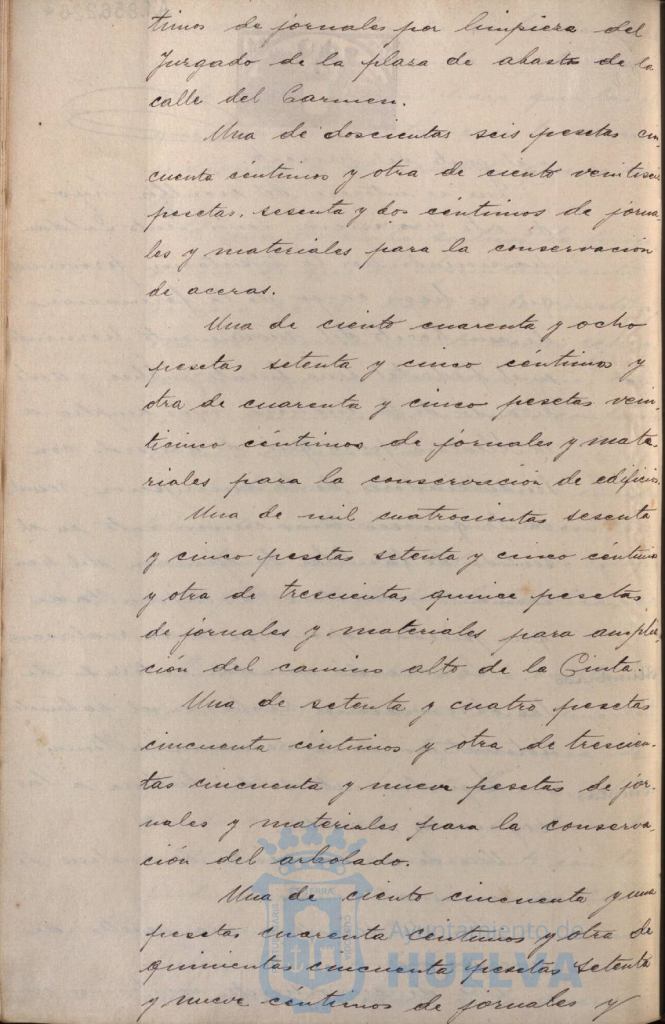 timos de jornales por limpieza del
Juzgado de la plaza de abastos de la
calle del Carmen.
Una de doscientas seis pesetas cin
cuenta céntimos y otra de ciento veintiseis
pesetas, sesenta y dos céntimos de jorna-
les y materiales para la conservación
de aceras.
Una de ciento cuarenta y ocho
pesetas setenta y cinco céntimos y
otra de cuarenta y cinco pesetas vein-
ticinco céntimos de jornales y mate-
riales para la conservación de edificios.
Una de mil cuatrocientas sesenta
y cinco pesetas setenta y cinco céntimos
y otra de trescientas quince pesetas
de jornales y materiales para amplia-
ción del camino alto de la Cinta.
Una de setenta y cuatro pesetas
cincuenta céntimos y otra de trescien-
tas cincuenta y nueve pesetas de jor-
nales y materiales para la conserva-
ción del arbolado.
Una de ciento cincuenta y una
pesetas cuarenta céntimos y otra de
quinientas cincuenta pesetas setenta
y nueve céntimos de jornales y
Ayuntamiento de
HUELVA